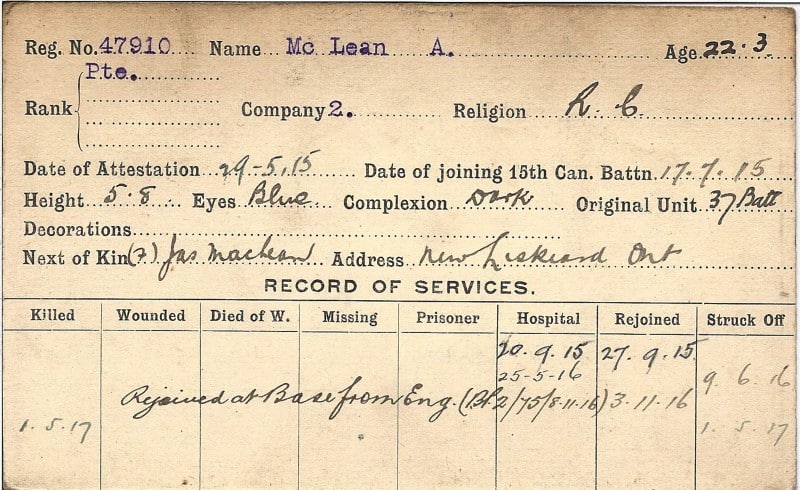 Reg. No. 47910 Name Mc Lean A. Age 22.3
Pte.
Rank Company 2. Religion R. C.
Date of Attestation 29-5.15 Date of joining 15th Can. Battn. 17.7.15
Height 5.8 Eyes Blue Complexion Dark Original Unit 37 Batt
Decorations
Next of Kin (F) Jas MacLean Address New Liskeard Ont
RECORD OF SERVICES.
Killed Wounded Died of W. Missing Prisoner Hospital Rejoined Struck Off
20.9.15 27.9.15
25-5-16 9.6.16
Rejoined at Base from Eng. (Bf. 2/75/8-11-16) 3.11.16
1.5.17 1.5.17